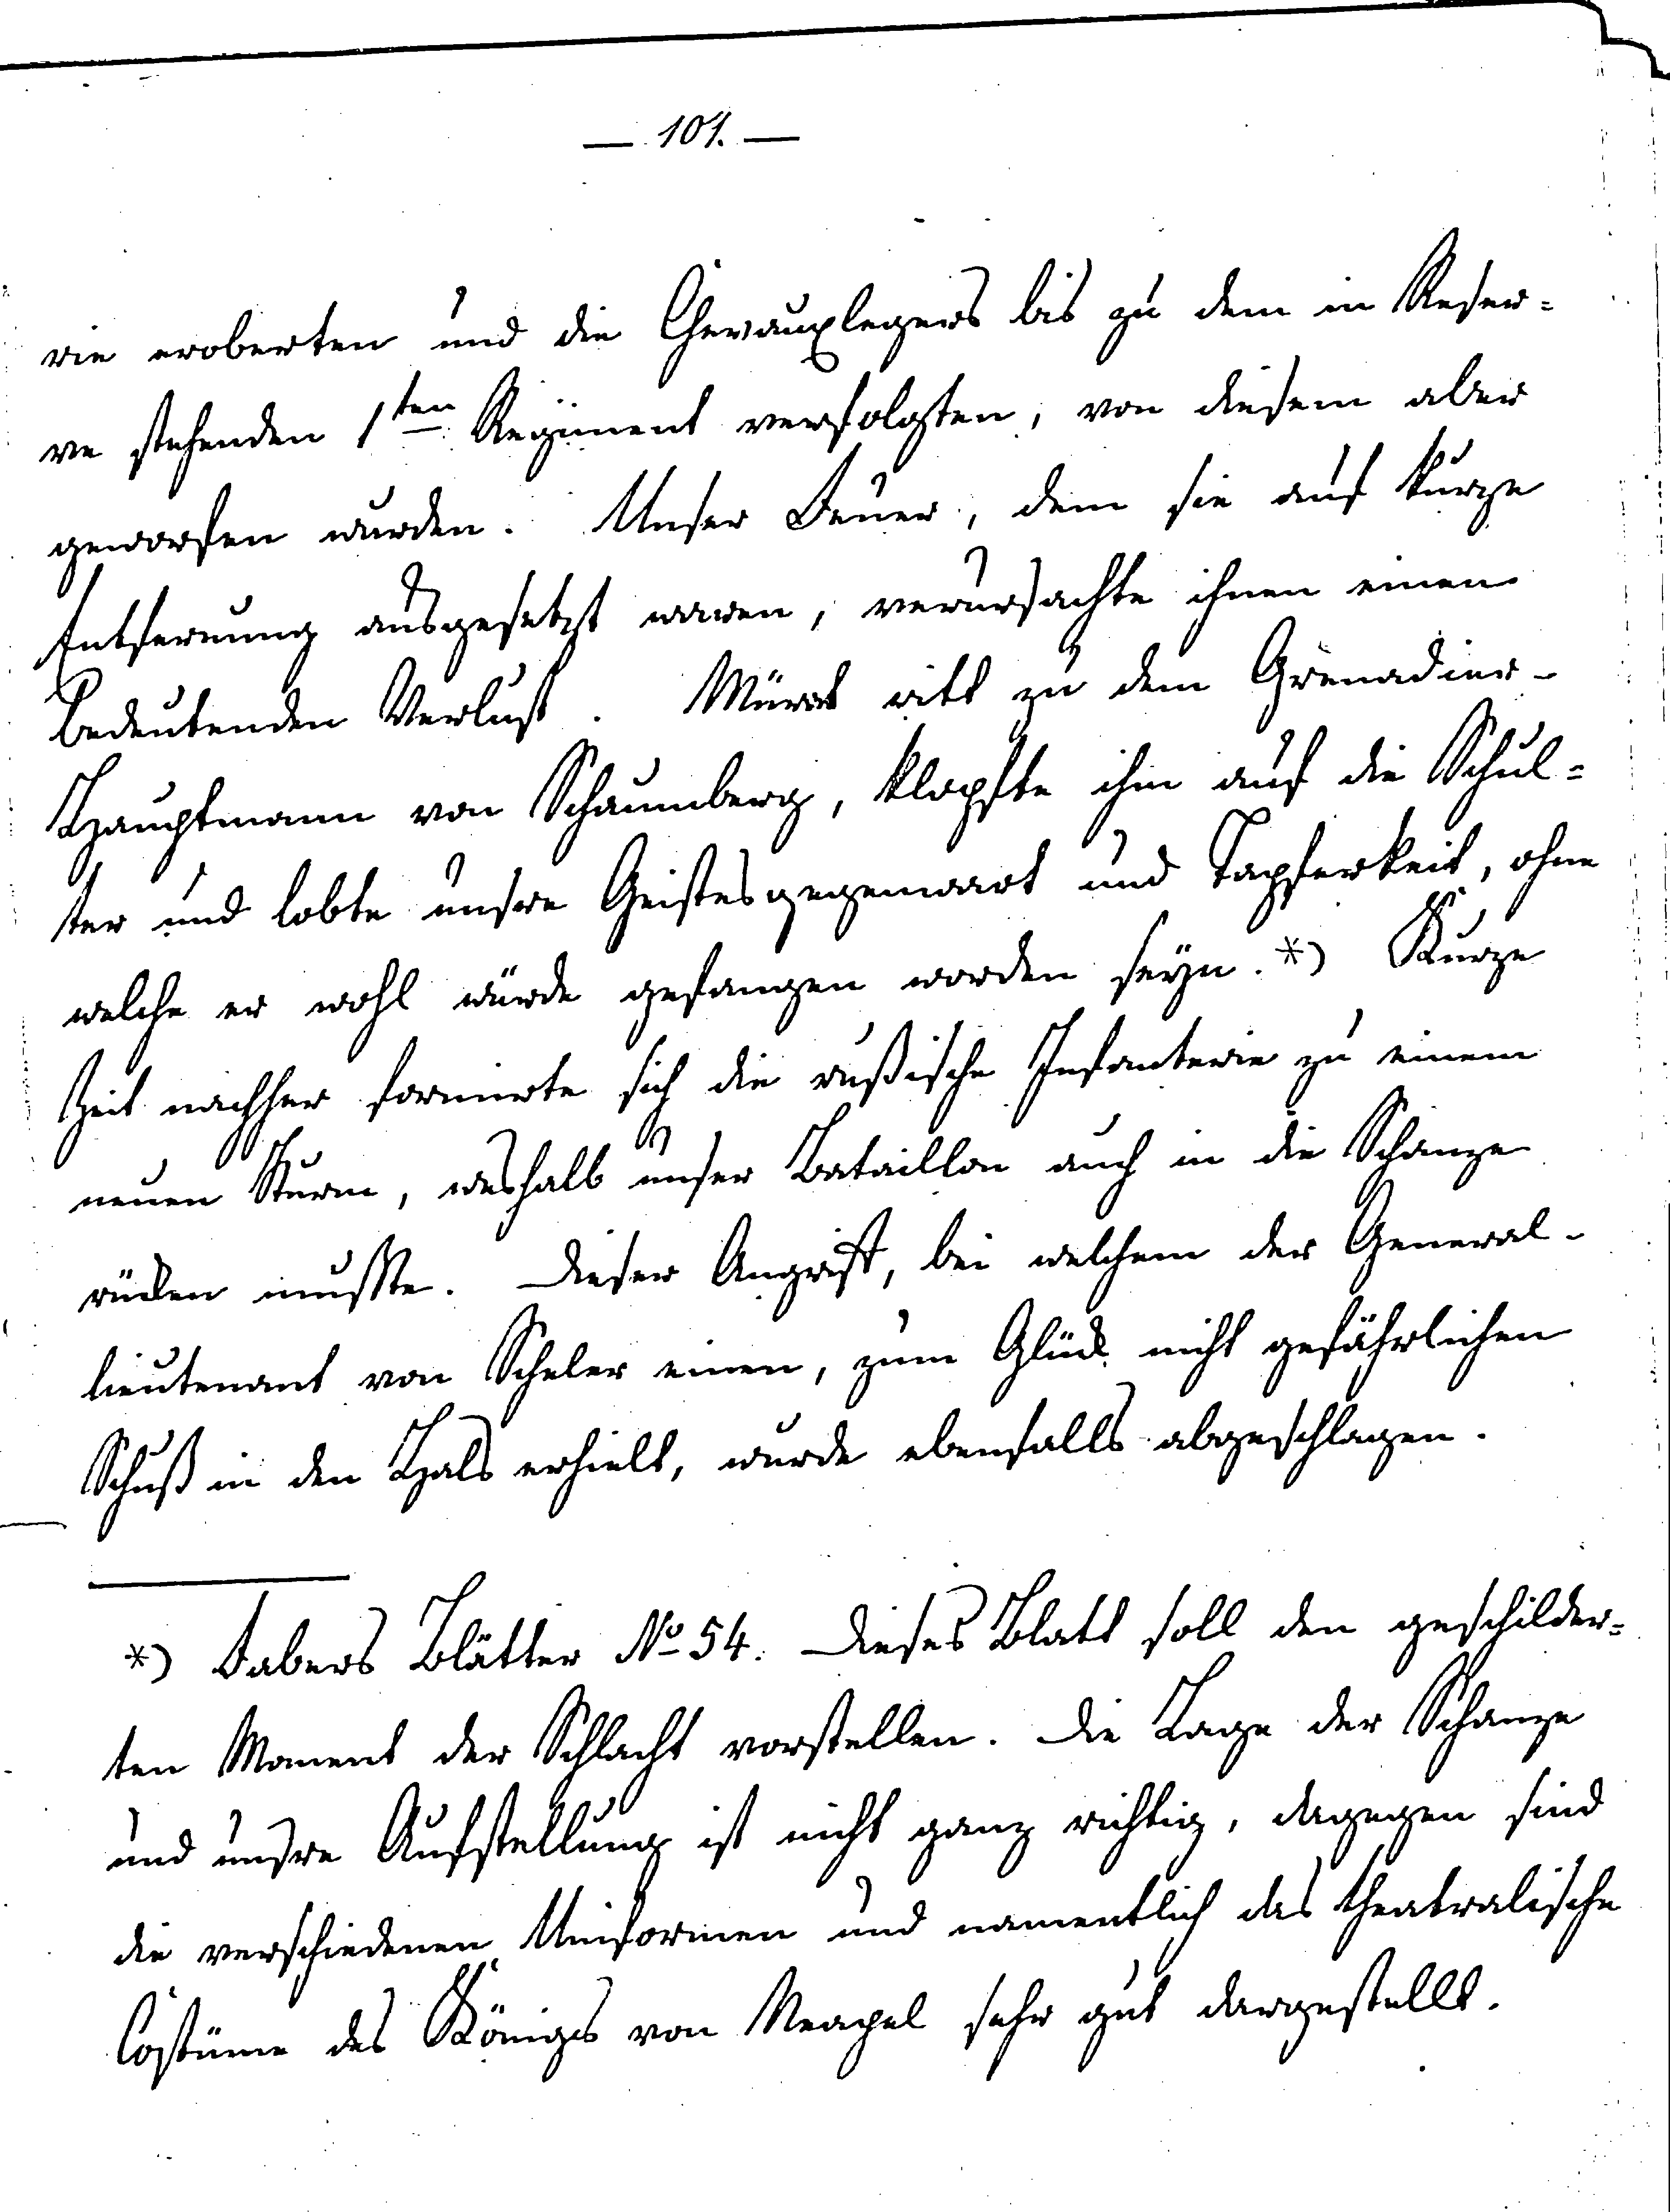 — 101. —
rie eroberten und die Chevauxlegers bis zu dem in Reser-
ve stehenden 1ten Regiment verfolgten, von diesem aber
geworfen wurden. Unser Feuer, dem sie auf kurze
Entfernung ausgesetzt waren, verursachte ihnen einen
bedeutenden Verlust. Mürat ritt zu dem Grenadier-
Hauptmann von Schaumberg, klopfte ihm auf die Schul-
ter und lobte unsre Geistesgegenwart und Tapferkeit, ohne
welche er wohl würde gefangen worden seyn. *) Kurze
Zeit nachher formirte sich die rußische Infanterie zu einem
neuen Sturm, weshalb unser Bataillon auch in die Schanze
rücken musste. Dieser Angriff, bei welchem der General-
lieutenant von Scheler einen, zum Glück nicht gefährlichen
Schuß in den Hals erhielt, wurde ebenfalls abgeschlagen.
*) Fabers Blätter No 54. Dieses Blatt soll den geschilder-
ten Moment der Schlacht vorstellen. Die Lage der Schanze
und unsre Aufstellung ist nicht ganz richtig, dagegen sind
die verschiedenen Uniformen und namentlich das theatralische
Costüme des Königs von Neapel sehr gut dargestellt.